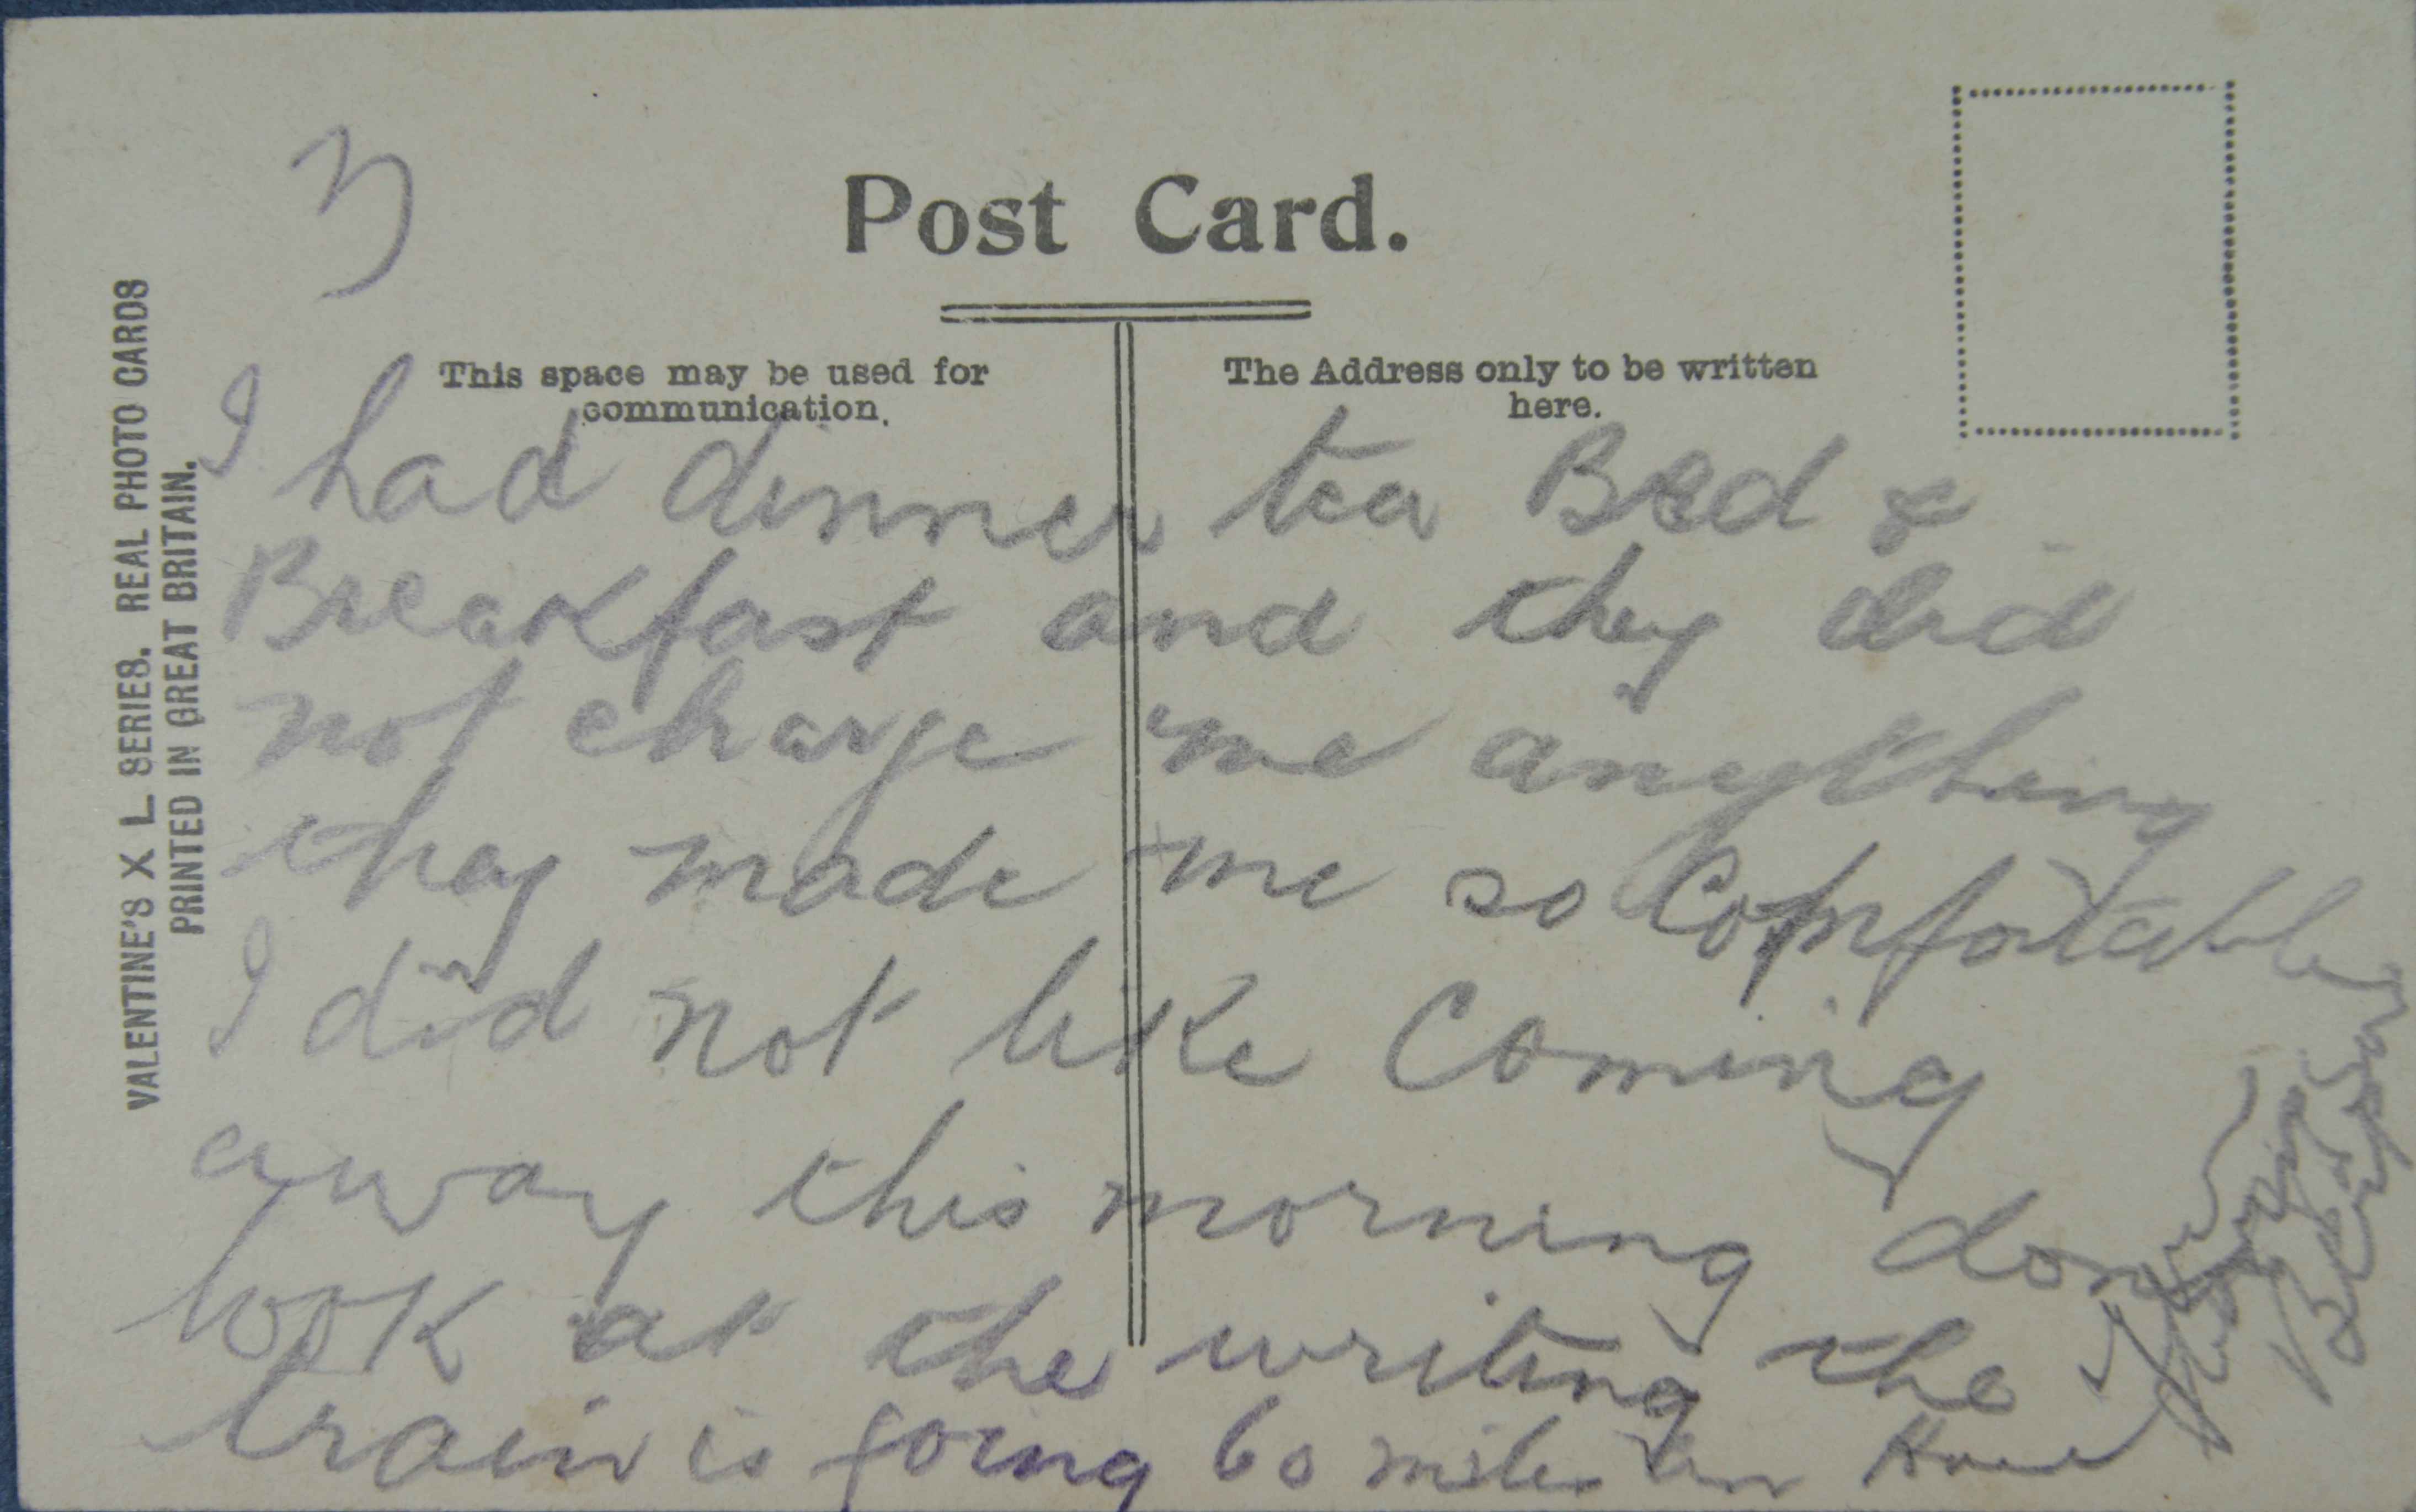 3
Post Card.
This space may be used for
communication.
The Address only to be written
here.
VALENTINE'S X L SERIES. REAL PHOTO CARDS
PRINTED IN GREAT BRITAIN.
I had dinner tea Bed &
Breakfast and they did
not charge me anything
they made me so Comfortable
I did not like Coming
away this morning dont
look at the writing the
train is going 60 miles an Hour